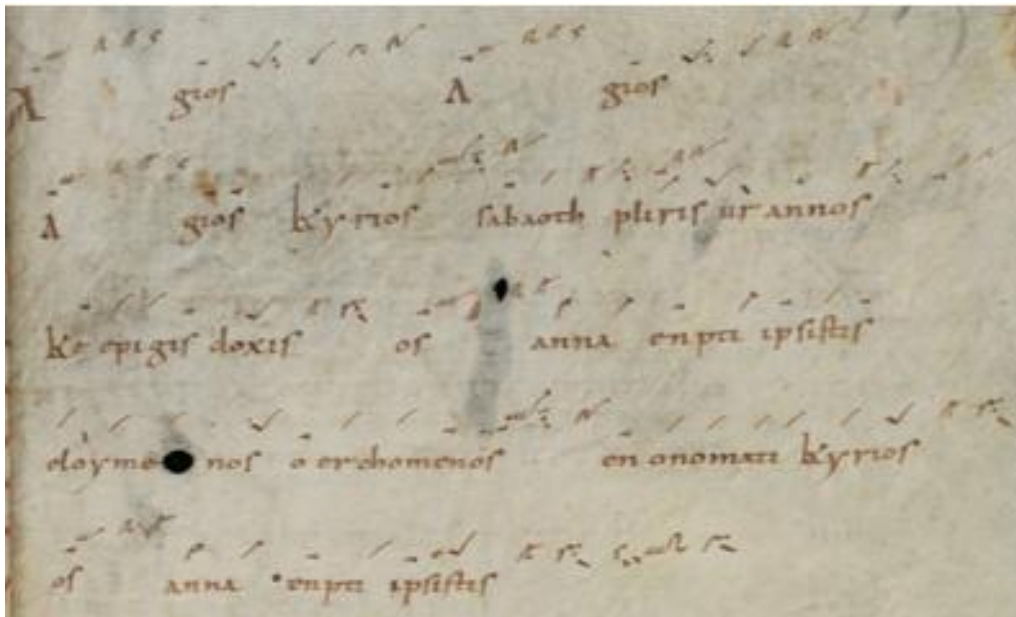 A gios A gios
A gios kyrios sabaoth pliris urannos
ke epigis doxis os anna enpti ipsistis
eloymenos o erchomenos en onomati kyrios
os anna enpti ipsistis